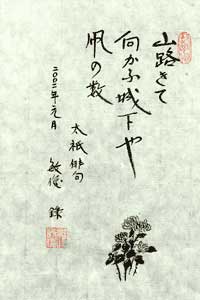 山路きて
向かふ城下や
凧の数
太祇俳句
敏俊 録
二〇〇二年元月